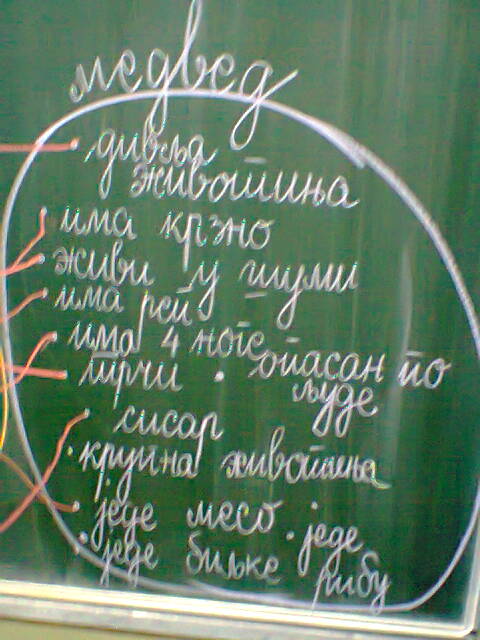 медвед
дивља
животиња
има крзно
живи у шуми
има реп
има 4 ноге
трчи · опасан по
људе
сисар
· крупна животиња
· једе месо · једе
· једе биљке рибу